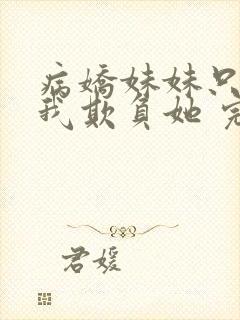 病嬌妹妹只
我欺負她 完
君媛